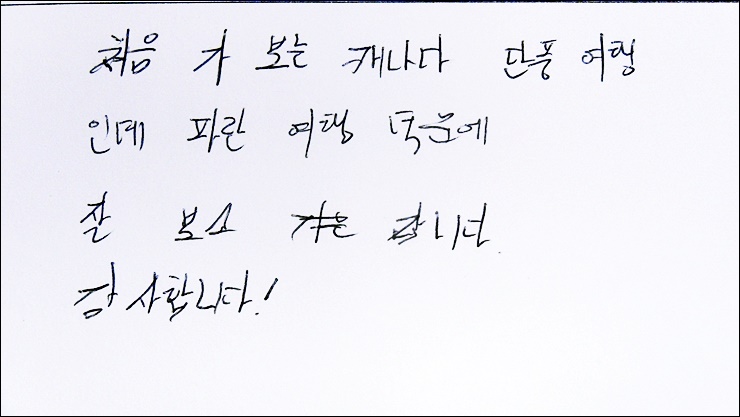 처음 가 보는 캐나다 단풍 여행
인데 파란 여행 덕분에
잘 보고 갑니다
감사합니다!